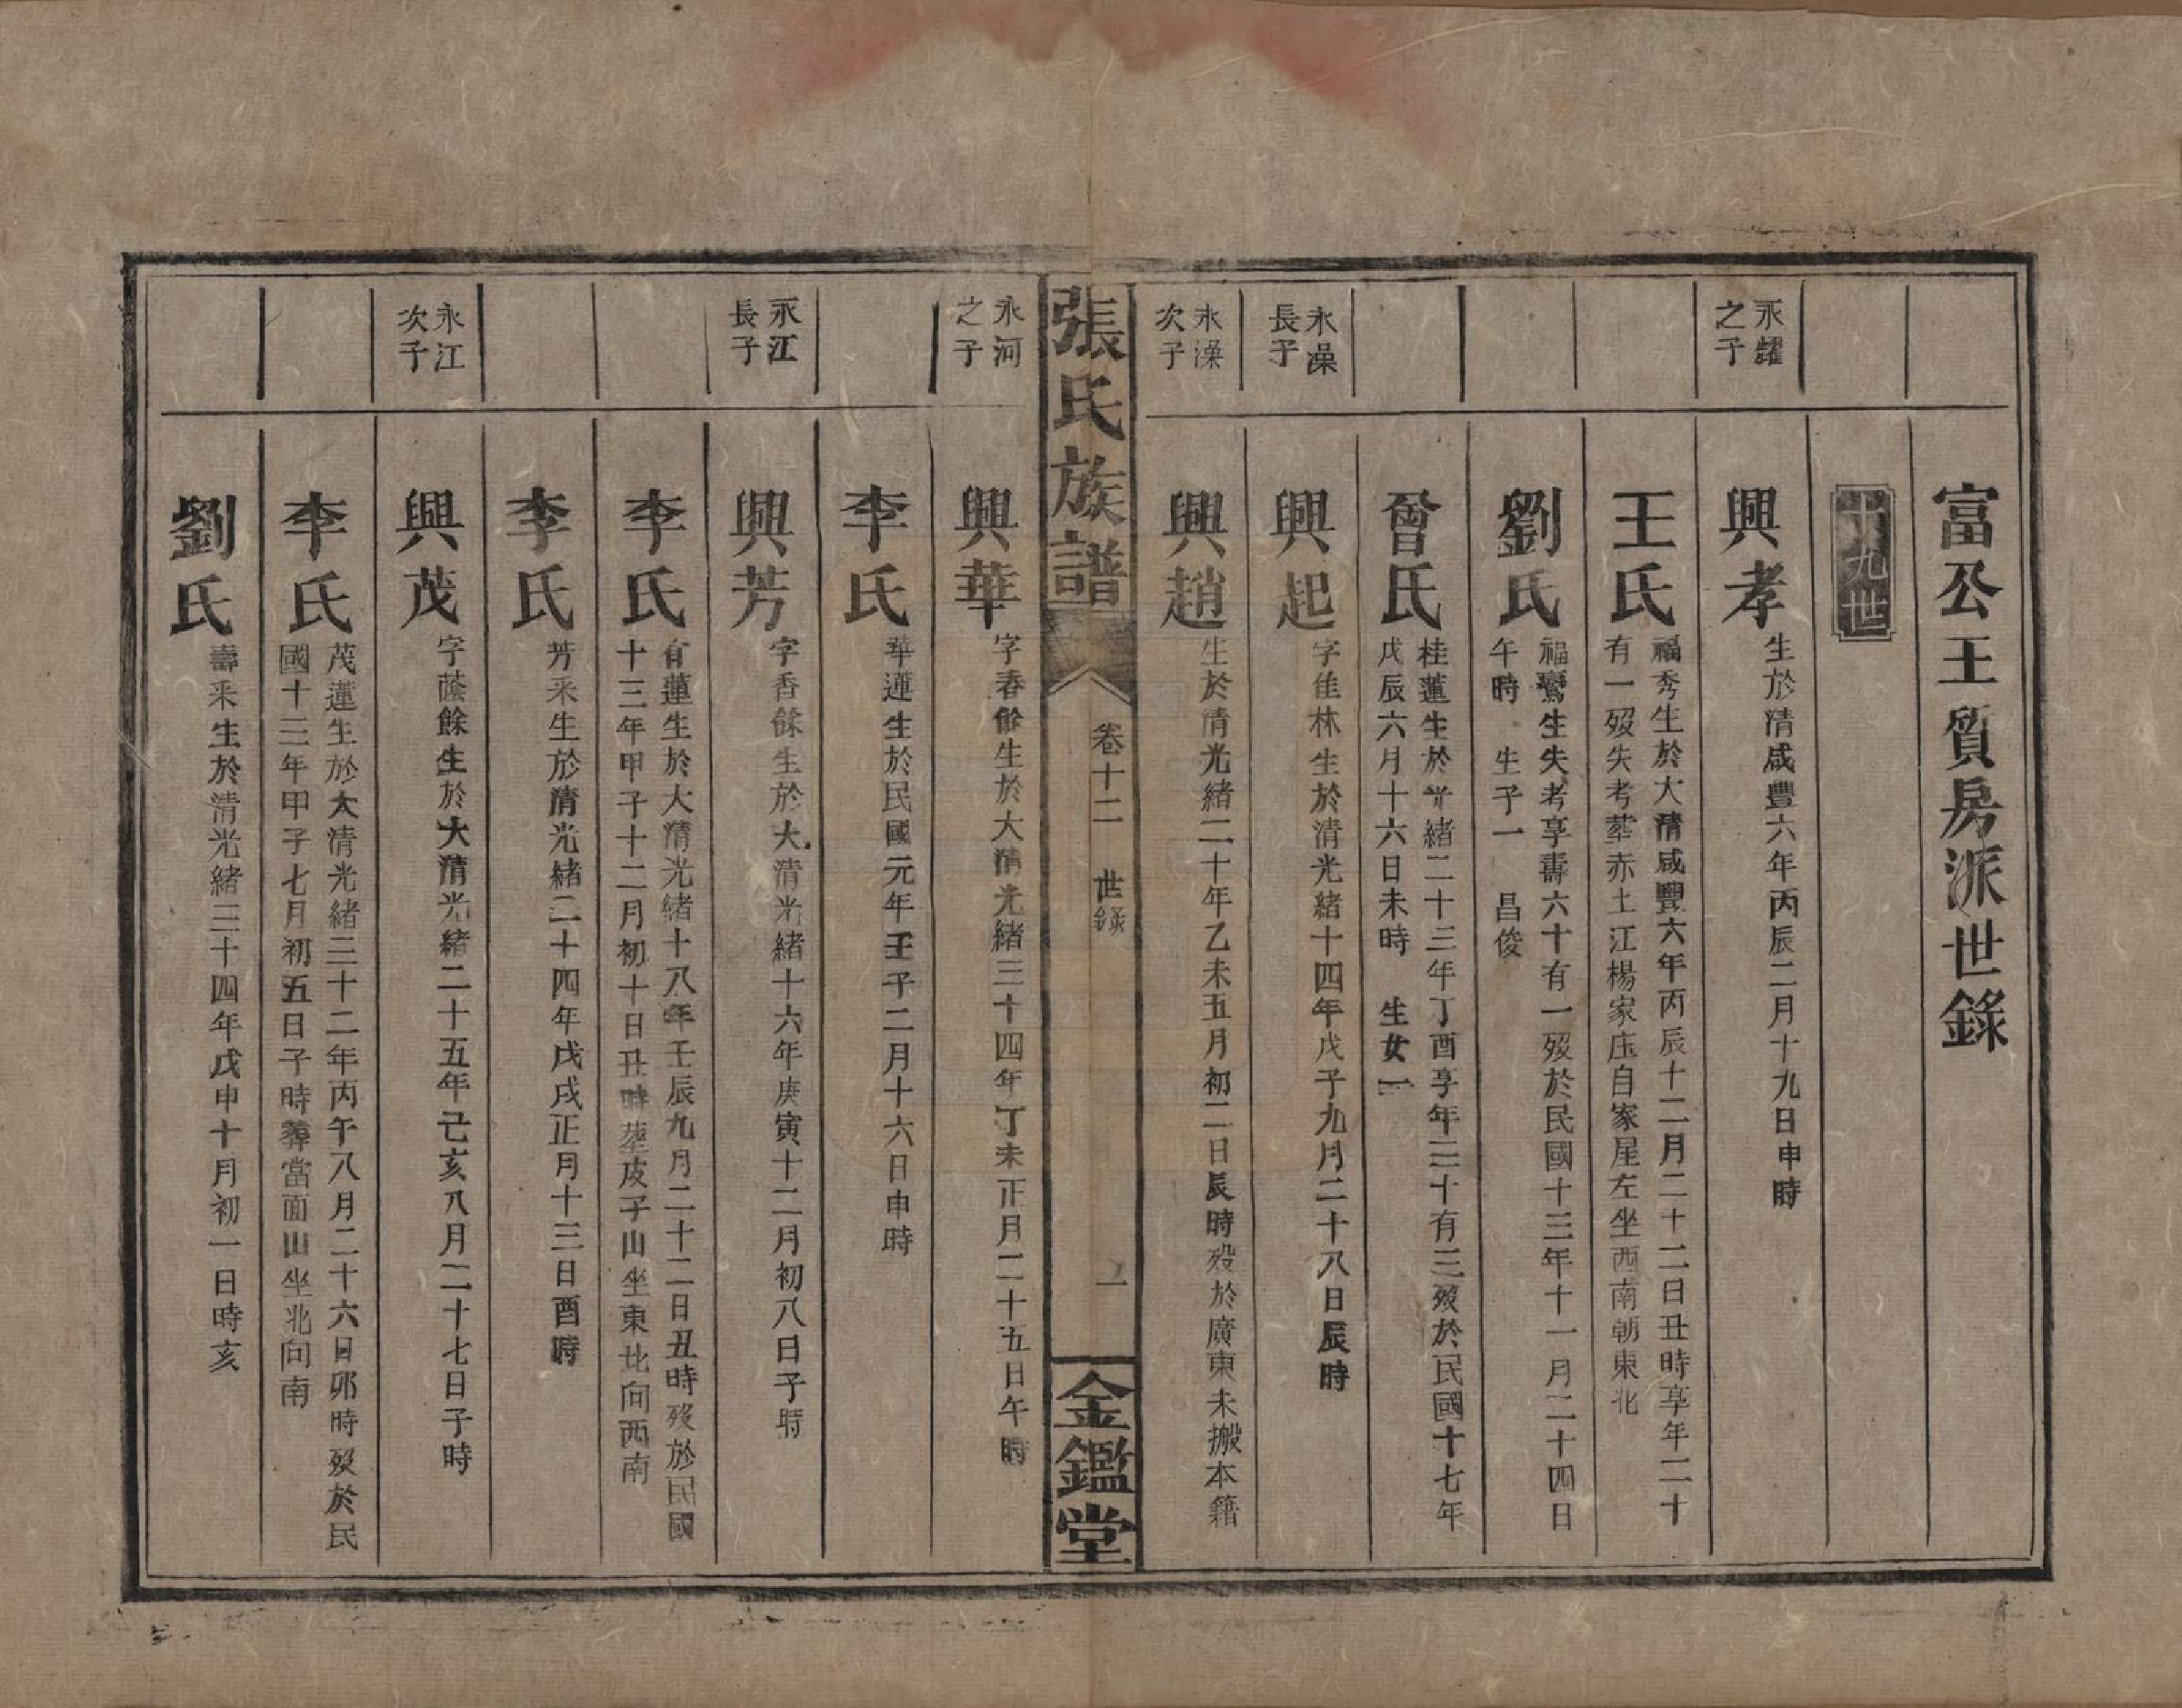 富公王質房派世錄
十九世
永耀
之子
興孝
生於清咸豐六年丙辰二月十九日申時
王氏
福秀生於大清咸豐六年丙辰十二月二十二日丑時享年二十
有一殁失考葬赤土江楊家庄自家屋左坐西南朝東北
劉氏
福鸞生失考享壽六十有一殁於民國十三年十一月二十四日
午時 生子一 昌俊
曾氏
桂蓮生於光緒二十三年丁酉享年三十有三殁於民國十七年
戊辰六月十六日未時 生女一
永澡
長子
興起
字佳林生於清光緒十四年戊子九月二十八日辰時
永澡
次子
興趙
生於清光緒二十年乙未五月初二日辰時殁於廣東未搬本籍
張氏族譜
卷十二 世錄
一
金鑑堂
永河
之子
興華
字春餘生於大清光緒三十四年丁未正月二十五日午時
李氏
華蓮生於民國元年壬子二月十六日申時
永江
長子
興芳
字香餘生於大清光緒十六年庚寅十二月初八日子時
李氏
有蓮生於大清光緒十八年壬辰九月二十二日丑時殁於民國
十三年甲子十二月初十日丑時葬皮子山坐東北向西南
李氏
芳釆生於清光緒二十四年戊戌正月十三日酉時
永江
次子
興茂
字蔭餘生於大清光緒二十五年己亥八月二十七日子時
李氏
茂蓮生於大清光緒三十二年丙午八月二十六日卯時殁於民
國十三年甲子七月初五日子時葬當面山坐北向南
劉氏
壽釆生於清光緒三十四年戊申十月初一日時亥